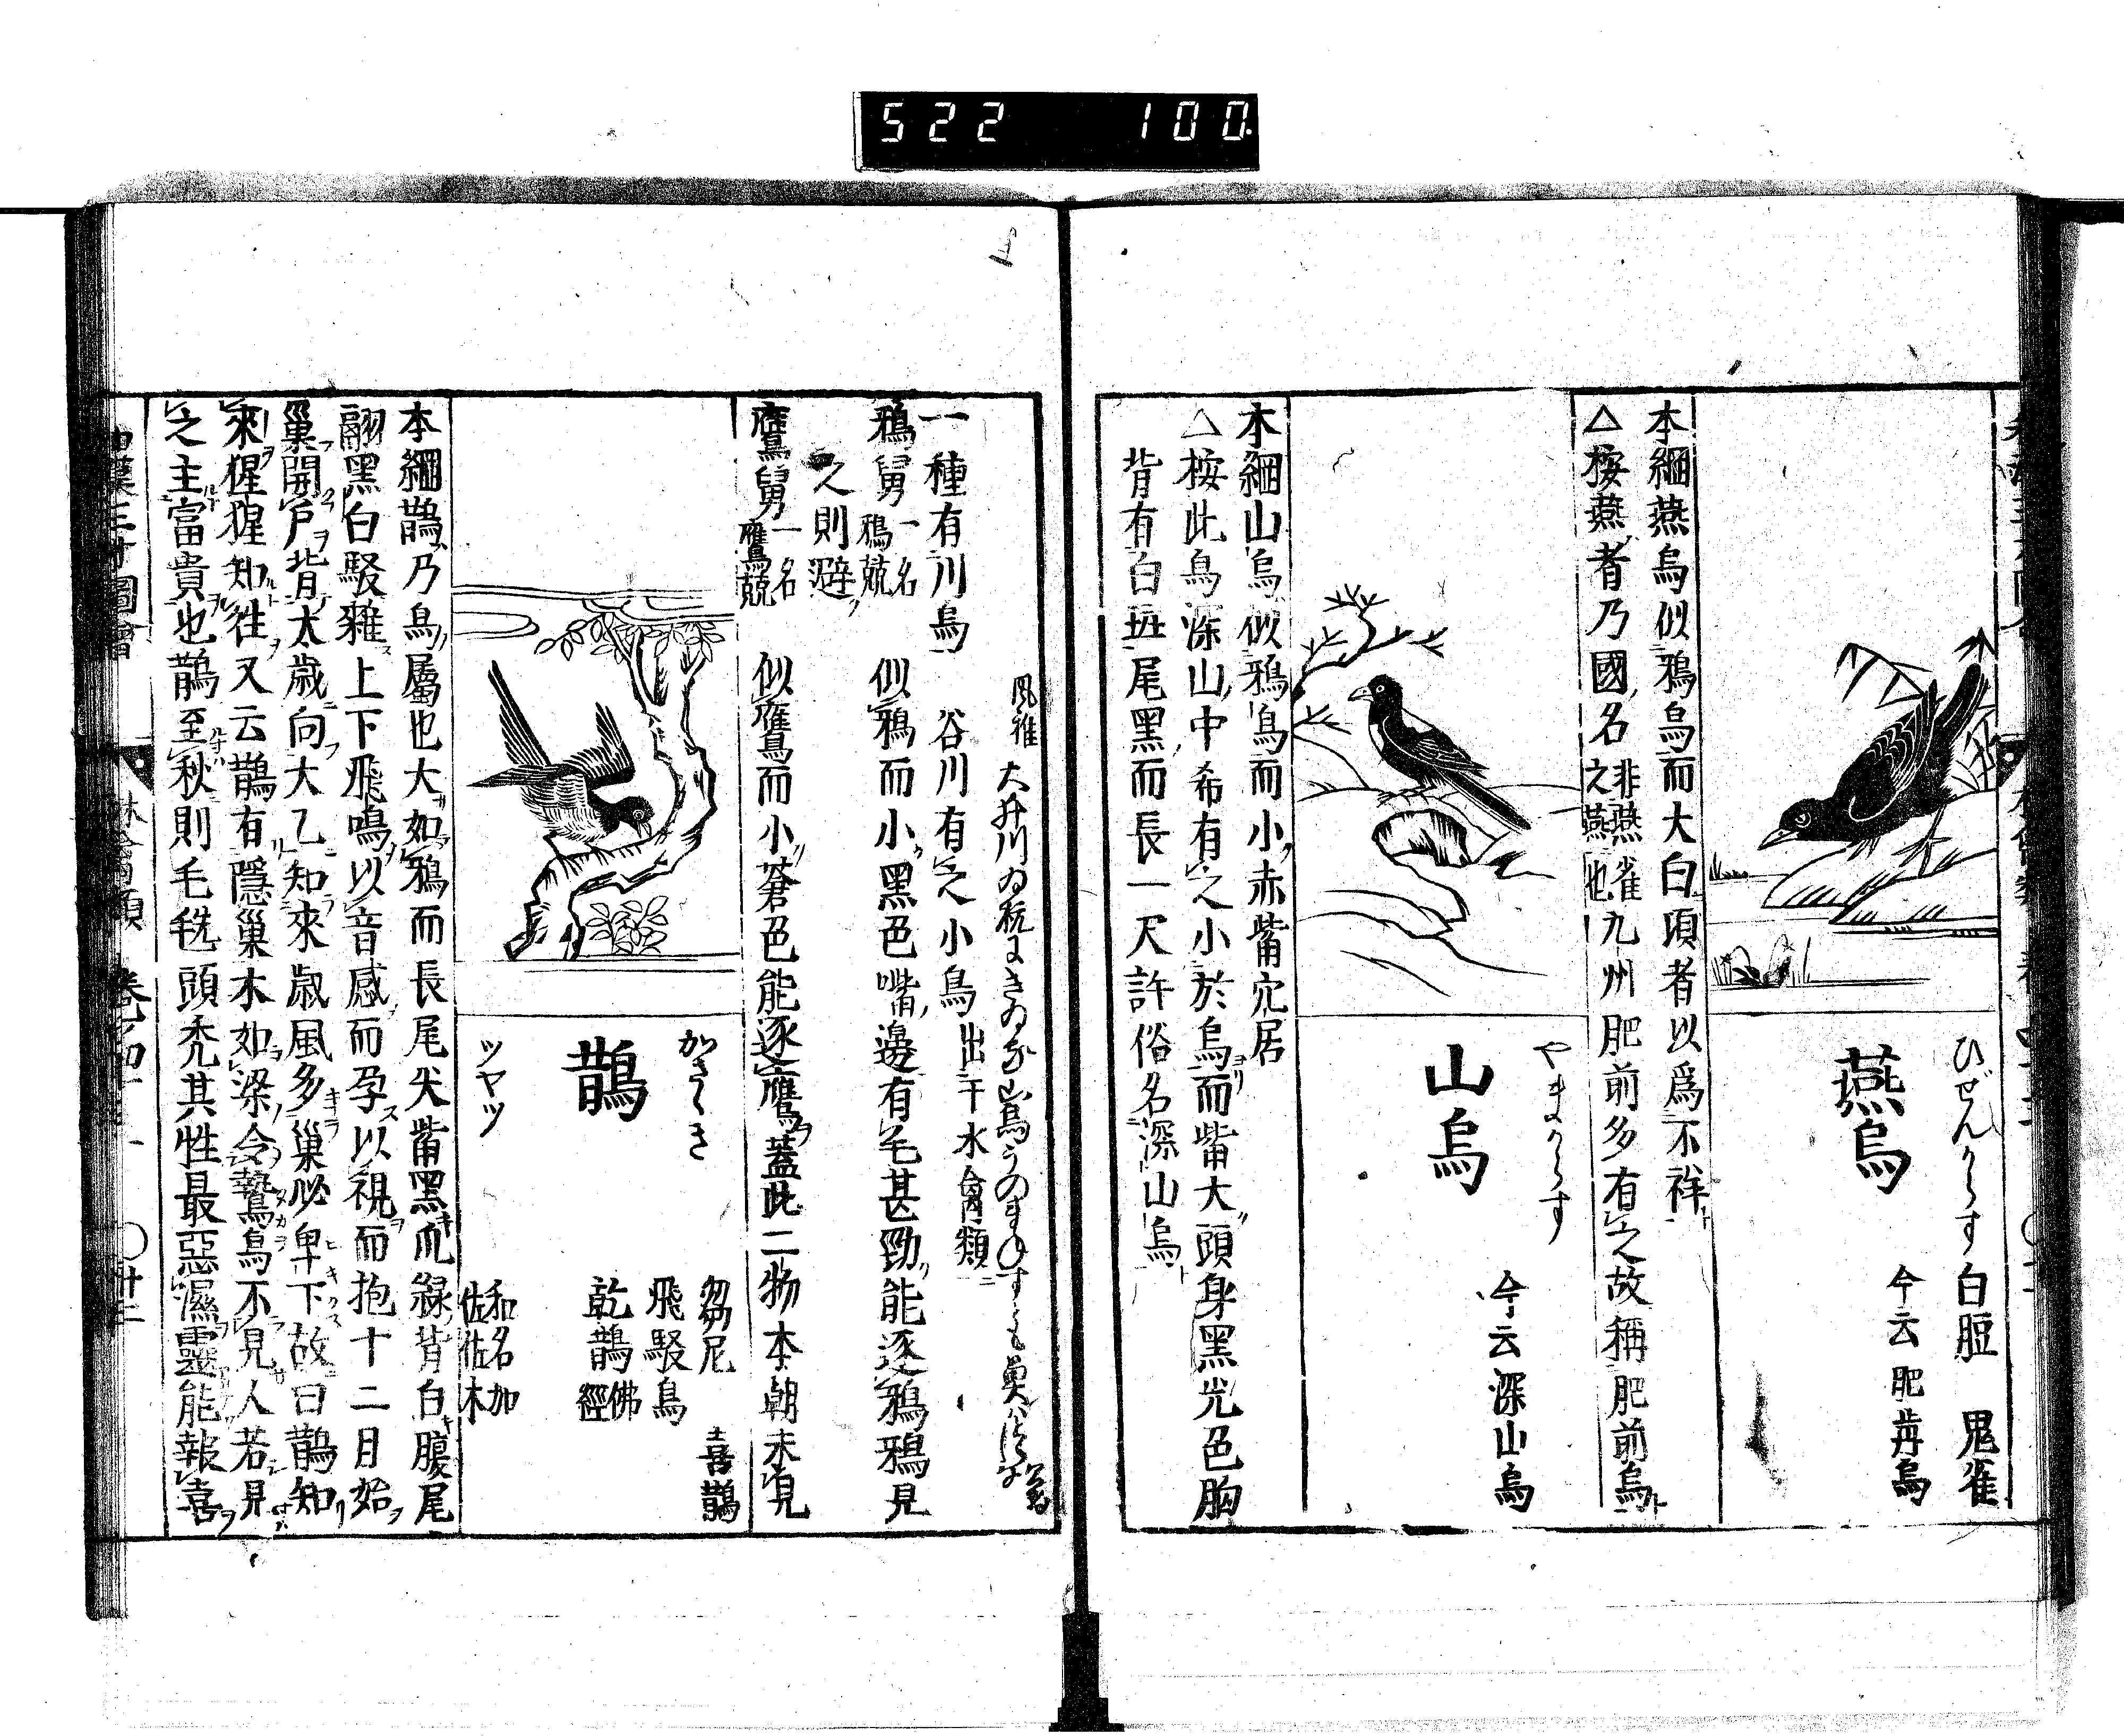 522 100
燕烏
ひぜんからす
白脰
鬼雀
今云肥前烏
本綱燕烏似鴉烏而大白項者以爲不祥
△按燕者乃國名
非燕雀
之燕也
九州肥前多有之故稱肥前烏
山烏
やまからす
今云深山烏
本綱山烏似鴉烏而小赤觜穴居
△按此烏深山中希有之小於烏而觜大頭身黑光色胸
背有白斑尾黑而長一尺許俗名深山烏
風雅
大井川
一種有川烏
谷川有之小鳥出于水禽類
鴉舅
一名
鴉競
似鴉而小黑色嘴邊有毛甚勁能逐鴉鴉見
之則避
鷹舅
一名
鷹競
似鷹而小蒼色能逐鷹蓋此二物本朝未見
鵲
かさゝき
ツヤツ
芻尼
喜鵲
飛駁鳥
乾鵲
佛
經
和名加
佐佐木
本綱鵲乃烏屬也大如鴉而長尾尖觜黑爪綠背白腹尾
翮黑白駁雜上下飛鳴以音感而孕以視而抱十二月始
巢開戶背太歲向太乙知來歲風多巢必卑下故曰鵲知
來猩猩知往又云鵲有隱巢木如梁令鷙鳥不見人若見
之主富貴也鵲至秋則毛毨頭禿其性最惡濕靈能報喜